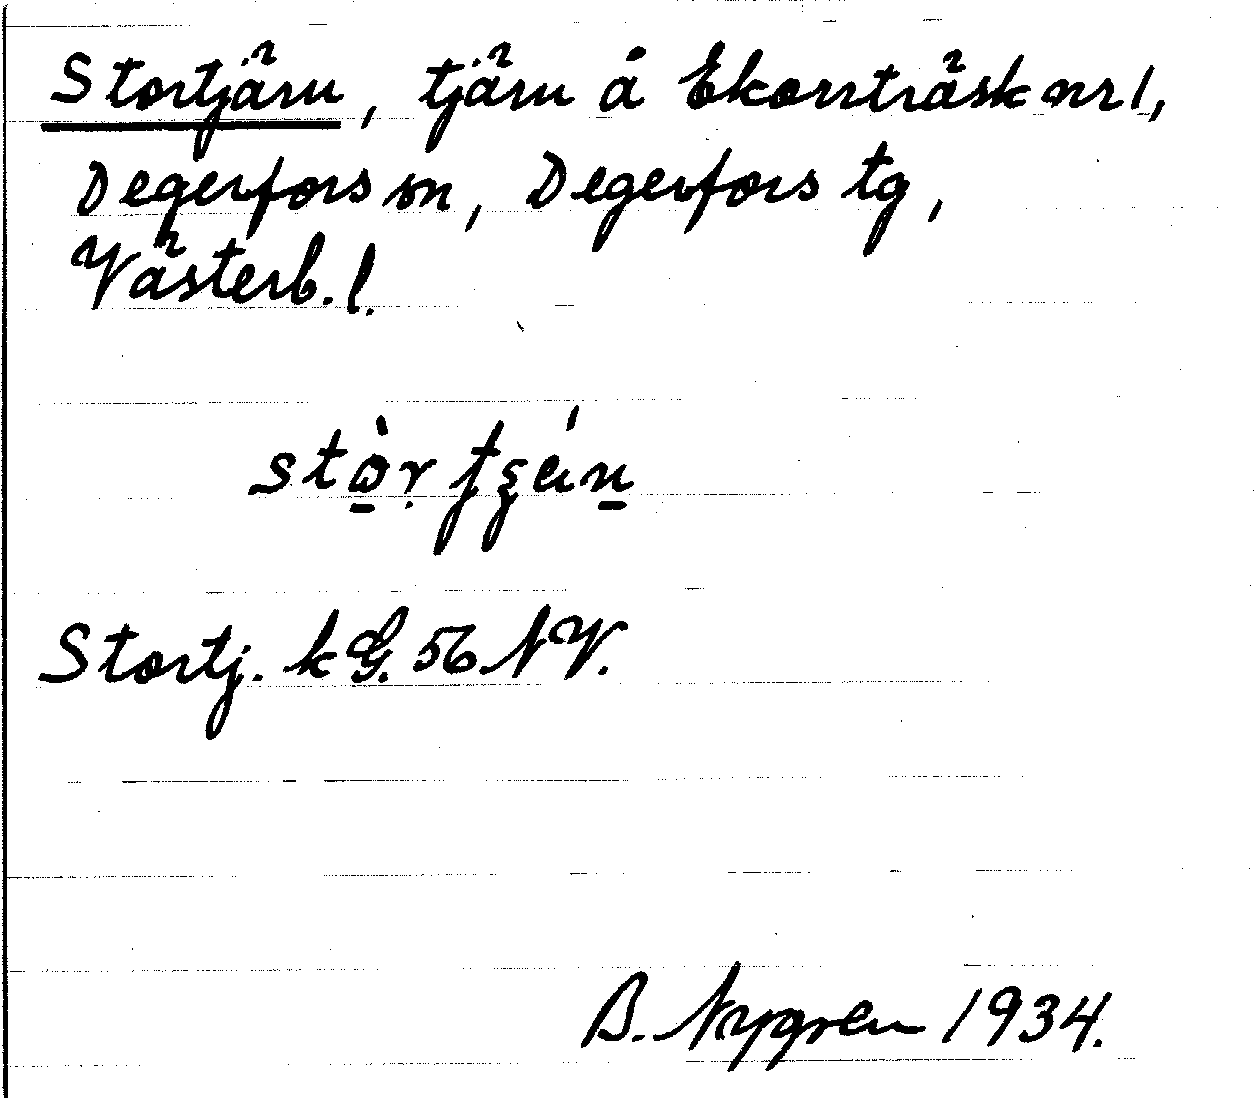 Stortjärn, tjärn å Ekorrträsk nr 1,
Degerfors sn, Degerfors tg,
Västerb. l.
Stortj. kG. 56 NV.
B. Nygren 1934.